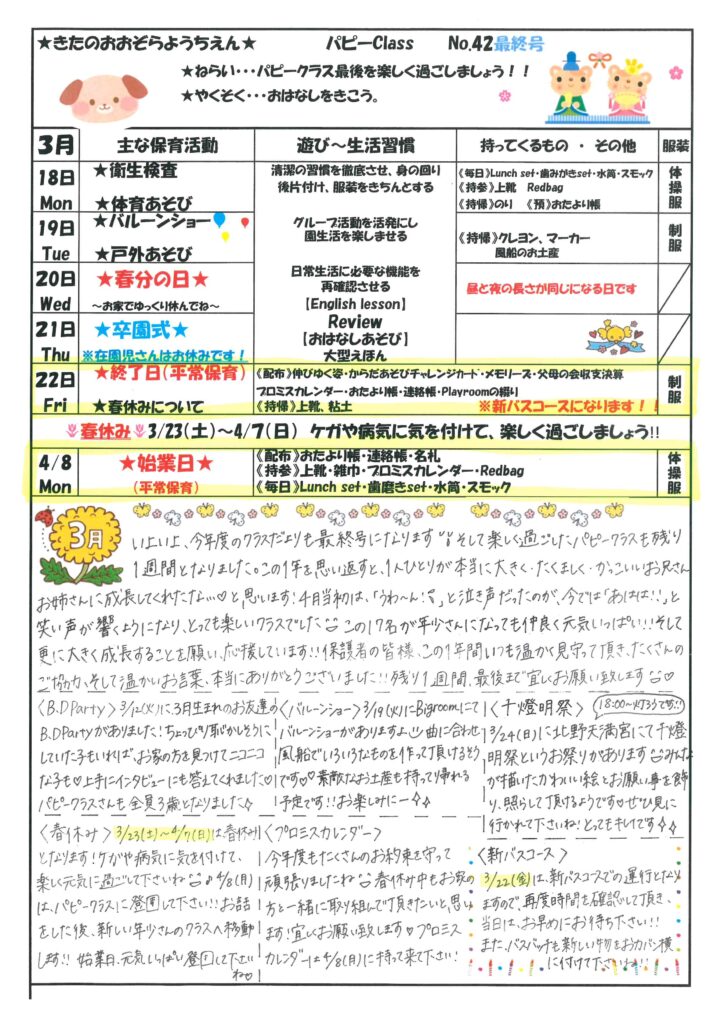 ★きたのおおぞらようちえん★ パピーClass No.42最終号
★ねらい・・・パピークラス最後を楽しく過ごしましょう！！
★やくそく・・・おはなしをきこう。
3月 主な保育活動 遊び～生活習慣 持ってくるもの ・ その他 服装
18日 Mon
★衛生検査
★体育あそび
清潔の習慣を徹底させ、身の回り
後片付け、服装をきちんとする
《毎日》Lunch set・歯みがきset・水筒・スモック
《持参》上靴 Redbag
《持帰》のり 《預》おたより帳
体操服
19日 Tue
★バルーンショー
★戸外あそび
グループ活動を活発にし
園生活を楽しませる
《持帰》クレヨン、マーカー
風船のお土産
制服
20日 Wed
★春分の日★
～お家でゆっくり休んでね～
日常生活に必要な機能を
再確認させる
【English lesson】
昼と夜の長さが同じになる日です
21日 Thu
★卒園式★
※在園児さんはお休みです！
Review
【おはなしあそび】
大型えほん
22日 Fri
★終了日(平常保育)
★春休みについて
《配布》伸びゆく姿・からだあそびチャレンジカード・メモリーズ・父母の会収支決算
プロミスカレンダー・おたより帳・連絡帳・Playroomの綴り
《持帰》上靴、粘土 ※新バスコースになります！！
制服
春休み 3/23(土)～4/7(日) ケガや病気に気を付けて、楽しく過ごしましょう!!
4/8 Mon
★始業日★
(平常保育)
《配布》おたより帳・連絡帳・名札
《持参》上靴・雑巾・プロミスカレンダー・Redbag
《毎日》Lunch set・歯磨きset・水筒・スモック
体操服
3月
いよいよ、今年度のクラスだよりも最終号になります そして楽しく過ごしたパピークラスも残り
1週間となりました。この1年を思い返すと、1人ひとりが本当に大きく・たくましく・かっこいいお兄さん
お姉さんに成長してくれたな…♡と思います！4月当初は、「うわ～ん！」と泣き声だったのが、今では「あはは!!」と
笑い声が響くようになり、とっても楽しいクラスでした この17名が年少さんになっても仲良く元気いっぱい!!そして
更に大きく成長することを願い、応援しています!!保護者の皆様、この1年間いつも温かく見守って頂き、たくさんの
ご協力、そして温かいお言葉、本当にありがとうございました!!残り1週間、最後まで宜しくお願い致します♡
〈B.D Party〉3/12(火)に3月生まれのお友達の
B.D Partyがありました！ちょっぴり恥かしそうに
していた子もいれば、お家の方を見つけてニコニコ
な子も♡上手にインタビューにも答えてくれました♡
パピークラスさんも全員3歳となりました☆
〈バルーンショー〉3/19(火)にBigroomにて
バルーンショーがありますよ 曲に合わせ
風船でいろいろなものを作って頂けるそう
です♡ 素敵なお土産も持って帰れる
予定です!!お楽しみにー✧✧
〈千燈明祭〉 18:00～灯ろうです!!
3/24(日)に北野天満宮にて千燈
明祭というお祭りがあります みんな
が描いたかわいい絵とお願い事を飾
り、照らして頂けるようです♡ぜひ見に
行かれて下さいね！とってもキレイです✧✧
〈春休み〉3/23(土)～4/7(日)は春休み
となります！ケガや病気に気を付けて、
楽しく元気に過ごして下さいね♪4/8(月)
は、パピークラスに登園して下さい!!お話
をした後、新しい年少さんのクラスへ移動
します!! 始業日、元気いっぱい登園して下さい
ね♡
〈プロミスカレンダー〉
今年度もたくさんのお約束を守って
頑張りましたね 春休み中もお家の
方と一緒に取り組んで頂きたいと思い
ます！宜しくお願い致します♡プロミス
カレンダーは4/8(月)に持って来て下さい！
〈新バスコース〉
3/22(金)は、新バスコースでの運行とな
りますので、再度時間を確認して頂き、
当日は、お早めにお待ち下さい!!
また、バスバッチも新しい物をおカバン横
に付けて下さいね!!